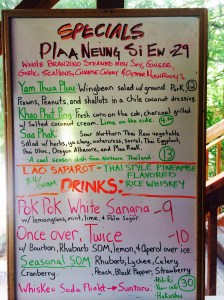 SPECIALS
PLAA NEUNG SI EW - 29
WHOLE BRANZINO STEAMED WITH SOY, GINGER,
GARLIC, SCALLIONS, CHINESE CELERY & OYSTER MUSHROOMS
Yam Thua Pluu Wingbean salad w/ ground Pork, 12
Prawns, Peanuts, and shallots in a chile coconut dressing.
Khao Phot Ping Fresh corn on the cob, char grilled
w/ Salted coconut cream. Lime on the side.
Saa Phak Sour Northern Thai Raw vegetable
Salad w/ herbs,
Oregon Albacore, and Plaa Raak.
A cool season dish from Northern Thailand. 13
LAO SAPAROT - THAI STYLE PINEAPPLE
FLAVORED
RICE WHISKEY
DRINKS:
POK POK White Sangria - 9
w/ lemongrass, mint, lime, & Palm Sugar
Once over, Twice - 10
w/ Bourbon, Rhubarb SOM, lemon, & Aperol over ice.
Seasonal SOM Rhubarb, Lychee, Celery
Cranberry, Peach, Black Pepper, Strawberry
Whiskey Soda Flight → Suntory: 30
Hakushu